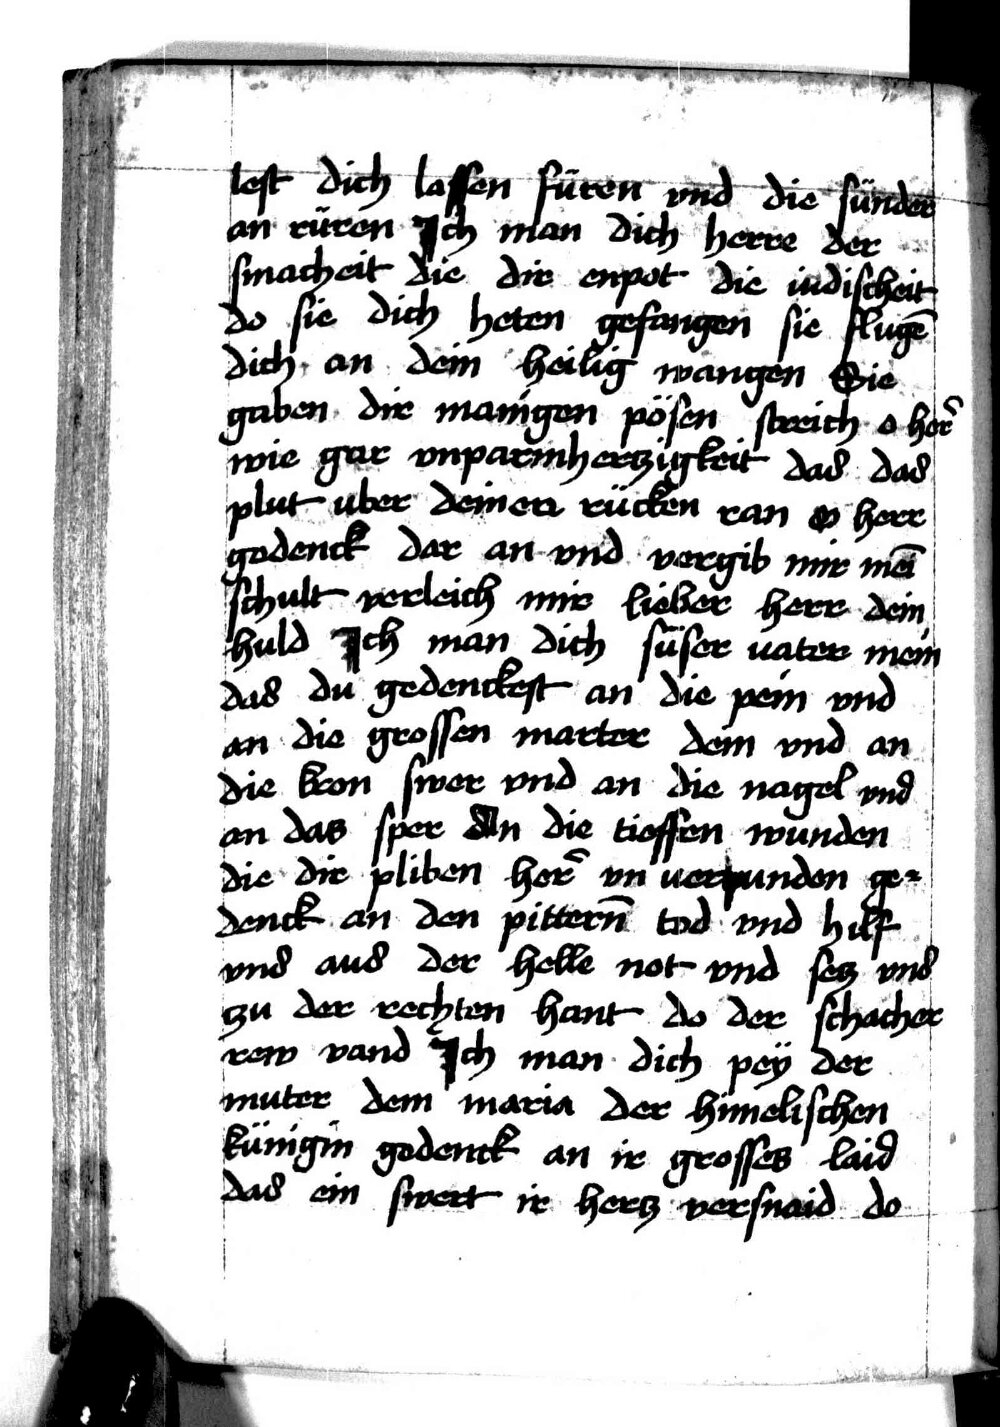 lest dich lassen füren vnd die sünder
an rüren Ich man dich herre der
smacheit die dir enpot die iudischeit
do sie dich heten gefangen sie slugē
dich an dein heilig wangen Sie
gaben dir manigen pösen streich o her̄
wie gar vnparmhertzigkeit das das
plut uber deinen rücken ran O herr
gedenck dar an vnd vergib mir mei̅
schult verleich mir lieber herr dein
huld Ich man dich süser uater mein
das du gedenckest an die pein vnd
an die grossen marter dein vnd an
die kron swer vnd an die nagel vnd
an das sper An die tieffen wunden
die dir pliben her̄ vn uerpunden ge-
denck an den pittern̄ tod vnd hilf
vns aus der helle not vnd setz vns
zu der rechten hant do der schacher
rew vand Ich man dich pey der
muter dein maria der himelischen
künigin gedenck an ir grosses laid
das ein swert ir hertz versnaid do